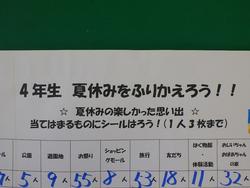 4年生 夏休みをふりかえろう!!
☆ 夏休みの楽しかった思い出 ☆
当てはまるものにシールはろう!(1人3枚まで)
ール 公園 遊園地 お祭り ショッピングモール 旅行 友だち はく物館・体験活動 おじいちゃんおばあちゃんの家
5 9 55 8 53 18 11 32